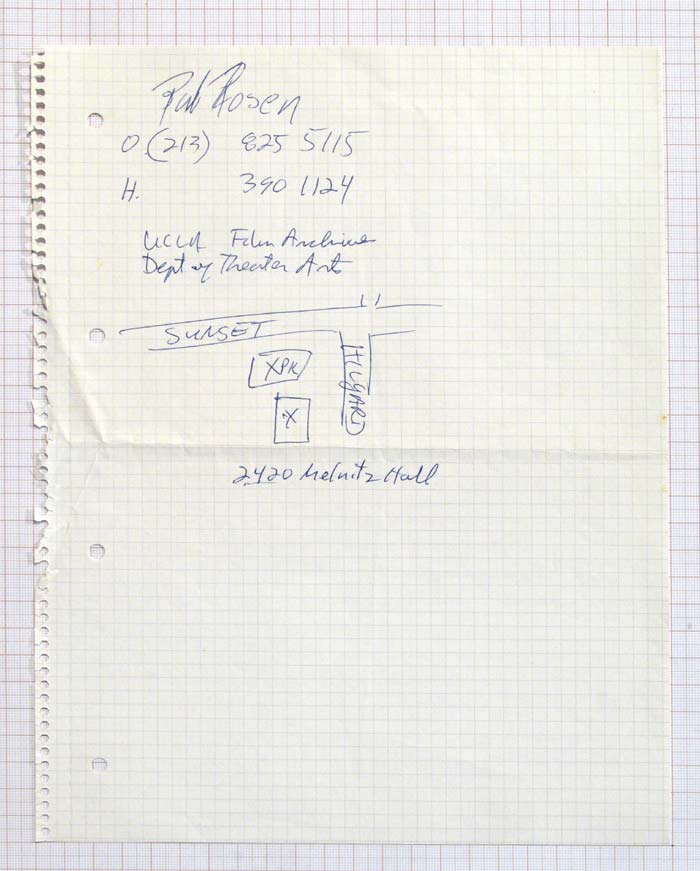 Rob Rosen
O (213) 825 5115
H. 390 1124
UCLA Film Archives
Dept of Theater Arts
SUNSET
HILGARD
XPK
X
2420 Melnitz Hall